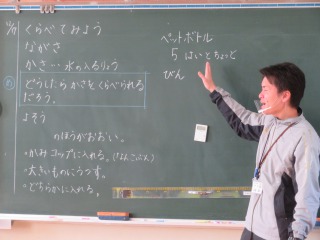 くらべてみよう
ながさ
かさ…水の入るりょう
どうしたらかさをくらべられる
だろう。
よそう
のほうがおおい。
・かみコップに入れる。(なんこぶん)
・大きいものにうつす。
・どちらかに入れる。
ペットボトル
5はいとちょっと
びん